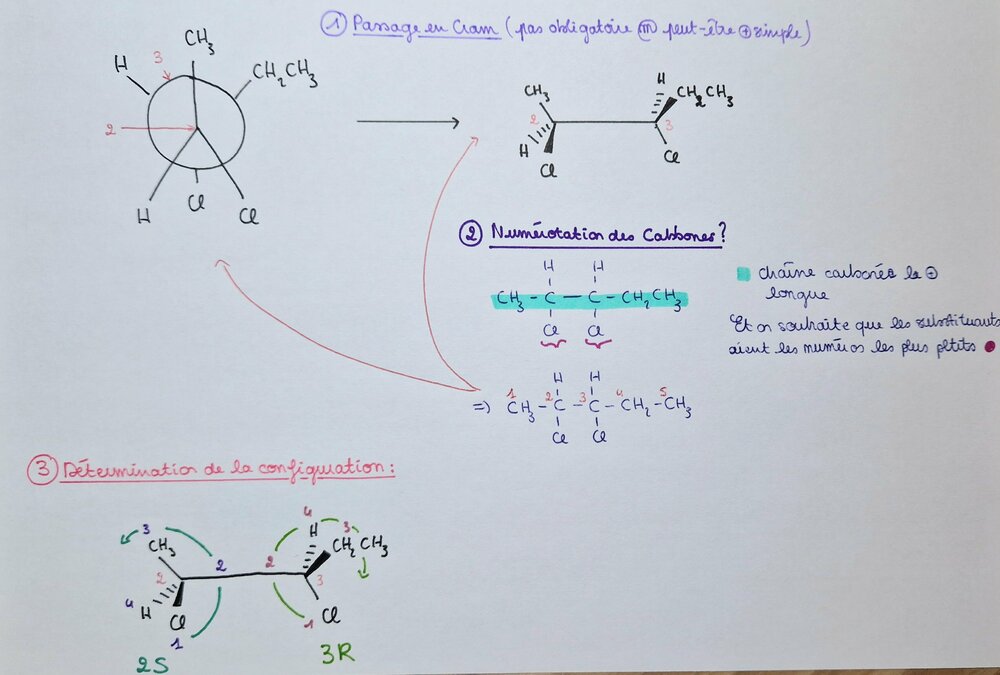 ① Passage en Cram (pas obligatoire m̂ peut-être ⊕ simple)
CH3
H
3
CH2CH3
2
H
Cl
Cl
H
CH3
CH2CH3
2
3
H
Cl
Cl
② Numérotation des Carbones?
H H
CH3 - C - C - CH2CH3
Cl Cl
chaîne carbonée la ⊕
longue
Et on souhaite que les substituants
aient les numéros les plus petits
H H
1 2 3 4 5
=> CH3 - C - C - CH2 - CH3
Cl Cl
③ Détermination de la configuration :
3
CH3
2
2
4
H
Cl
1
2S
4
H
3
CH2CH3
2
3
1
Cl
3R